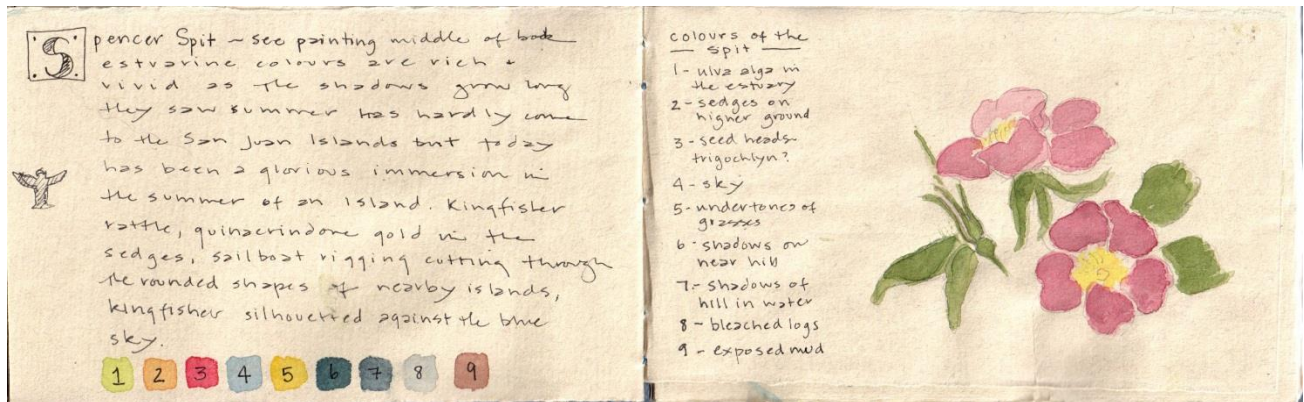 Spencer Spit ~ see painting middle of book
estuarine colours are rich +
vivid as the shadows grow long
they say summer has hardly come
to the San Juan Islands but today
has been a glorious immersion in
the summer of an island. Kingfisher
rattle, quinacrindone gold in the
sedges, sailboat rigging cutting through
the rounded shapes of nearby islands,
kingfisher silhouetted against the blue
sky.
1 2 3 4 5 6 7 8 9
colours of the
spit
1 - ulva alga in
the estuary
2 - sedges on
higher ground
3 - seed heads
trigochlyn?
4 - sky
5 - undertones of
grasses
6 - shadows on
near hill
7 - shadows of
hill in water
8 - bleached logs
9 - exposed mud